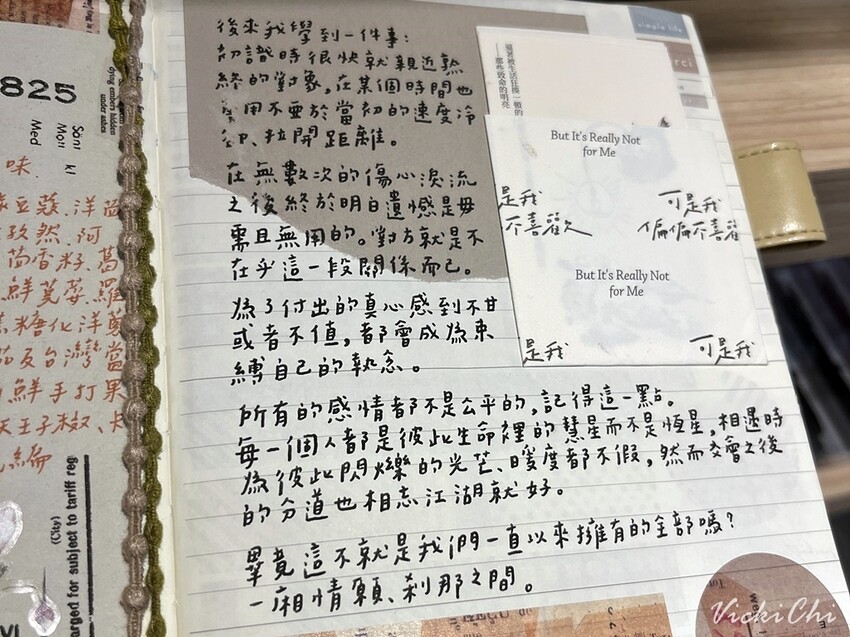 後來我學到一件事：
初識時很快就親近熟
終的對象，在某個時間也
用不亞於當初的速度冷
卻、拉開距離。
在無數次的傷心淚流
之後終於明白遺憾是毋
需且無用的。對方就是不
在乎這一段關係而已。
為了付出的真心感到不甘
或者不值，都會成為束
縛自己的執念。
所有的感情都不是公平的，記得這一點。
每一個人都是彼此生命裡的慧星而不是恆星，相遇時
為彼此閃爍的光芒、暖度都不假，然而交會之後
的分道也相忘江湖就好。
畢竟這不就是我們一直以來擁有的全部嗎？
一廂情願、剎那之間。
But It's Really Not
for Me
是我
不喜歡
可是我
偏偏不喜歡
But It's Really Not
for Me
是我
可是我
那些致命的明亮
simple life
825
dying embers hidden
under ashes
味.
豆蔻.洋茴
孜然.阿
茴香籽.葛
鮮芫荽.羅
焦糖化洋蔥
茄及台灣當
鮮手打果
天王子椒、卡
編
(City)
arged for subject to tariff reg
VickiChi